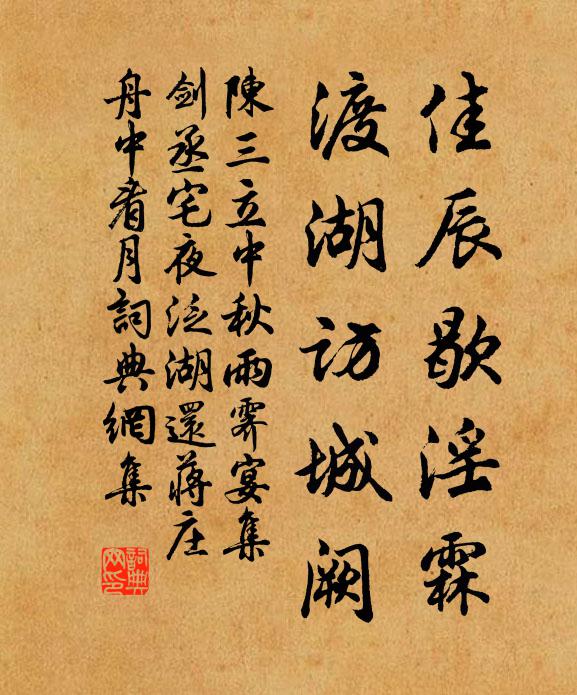 佳辰歇淫霖
渡湖訪城闕
陳三立中秋雨霽宴集
劍丞宅夜泛湖還蔣庄
舟中看月詞典網集
詞典网印